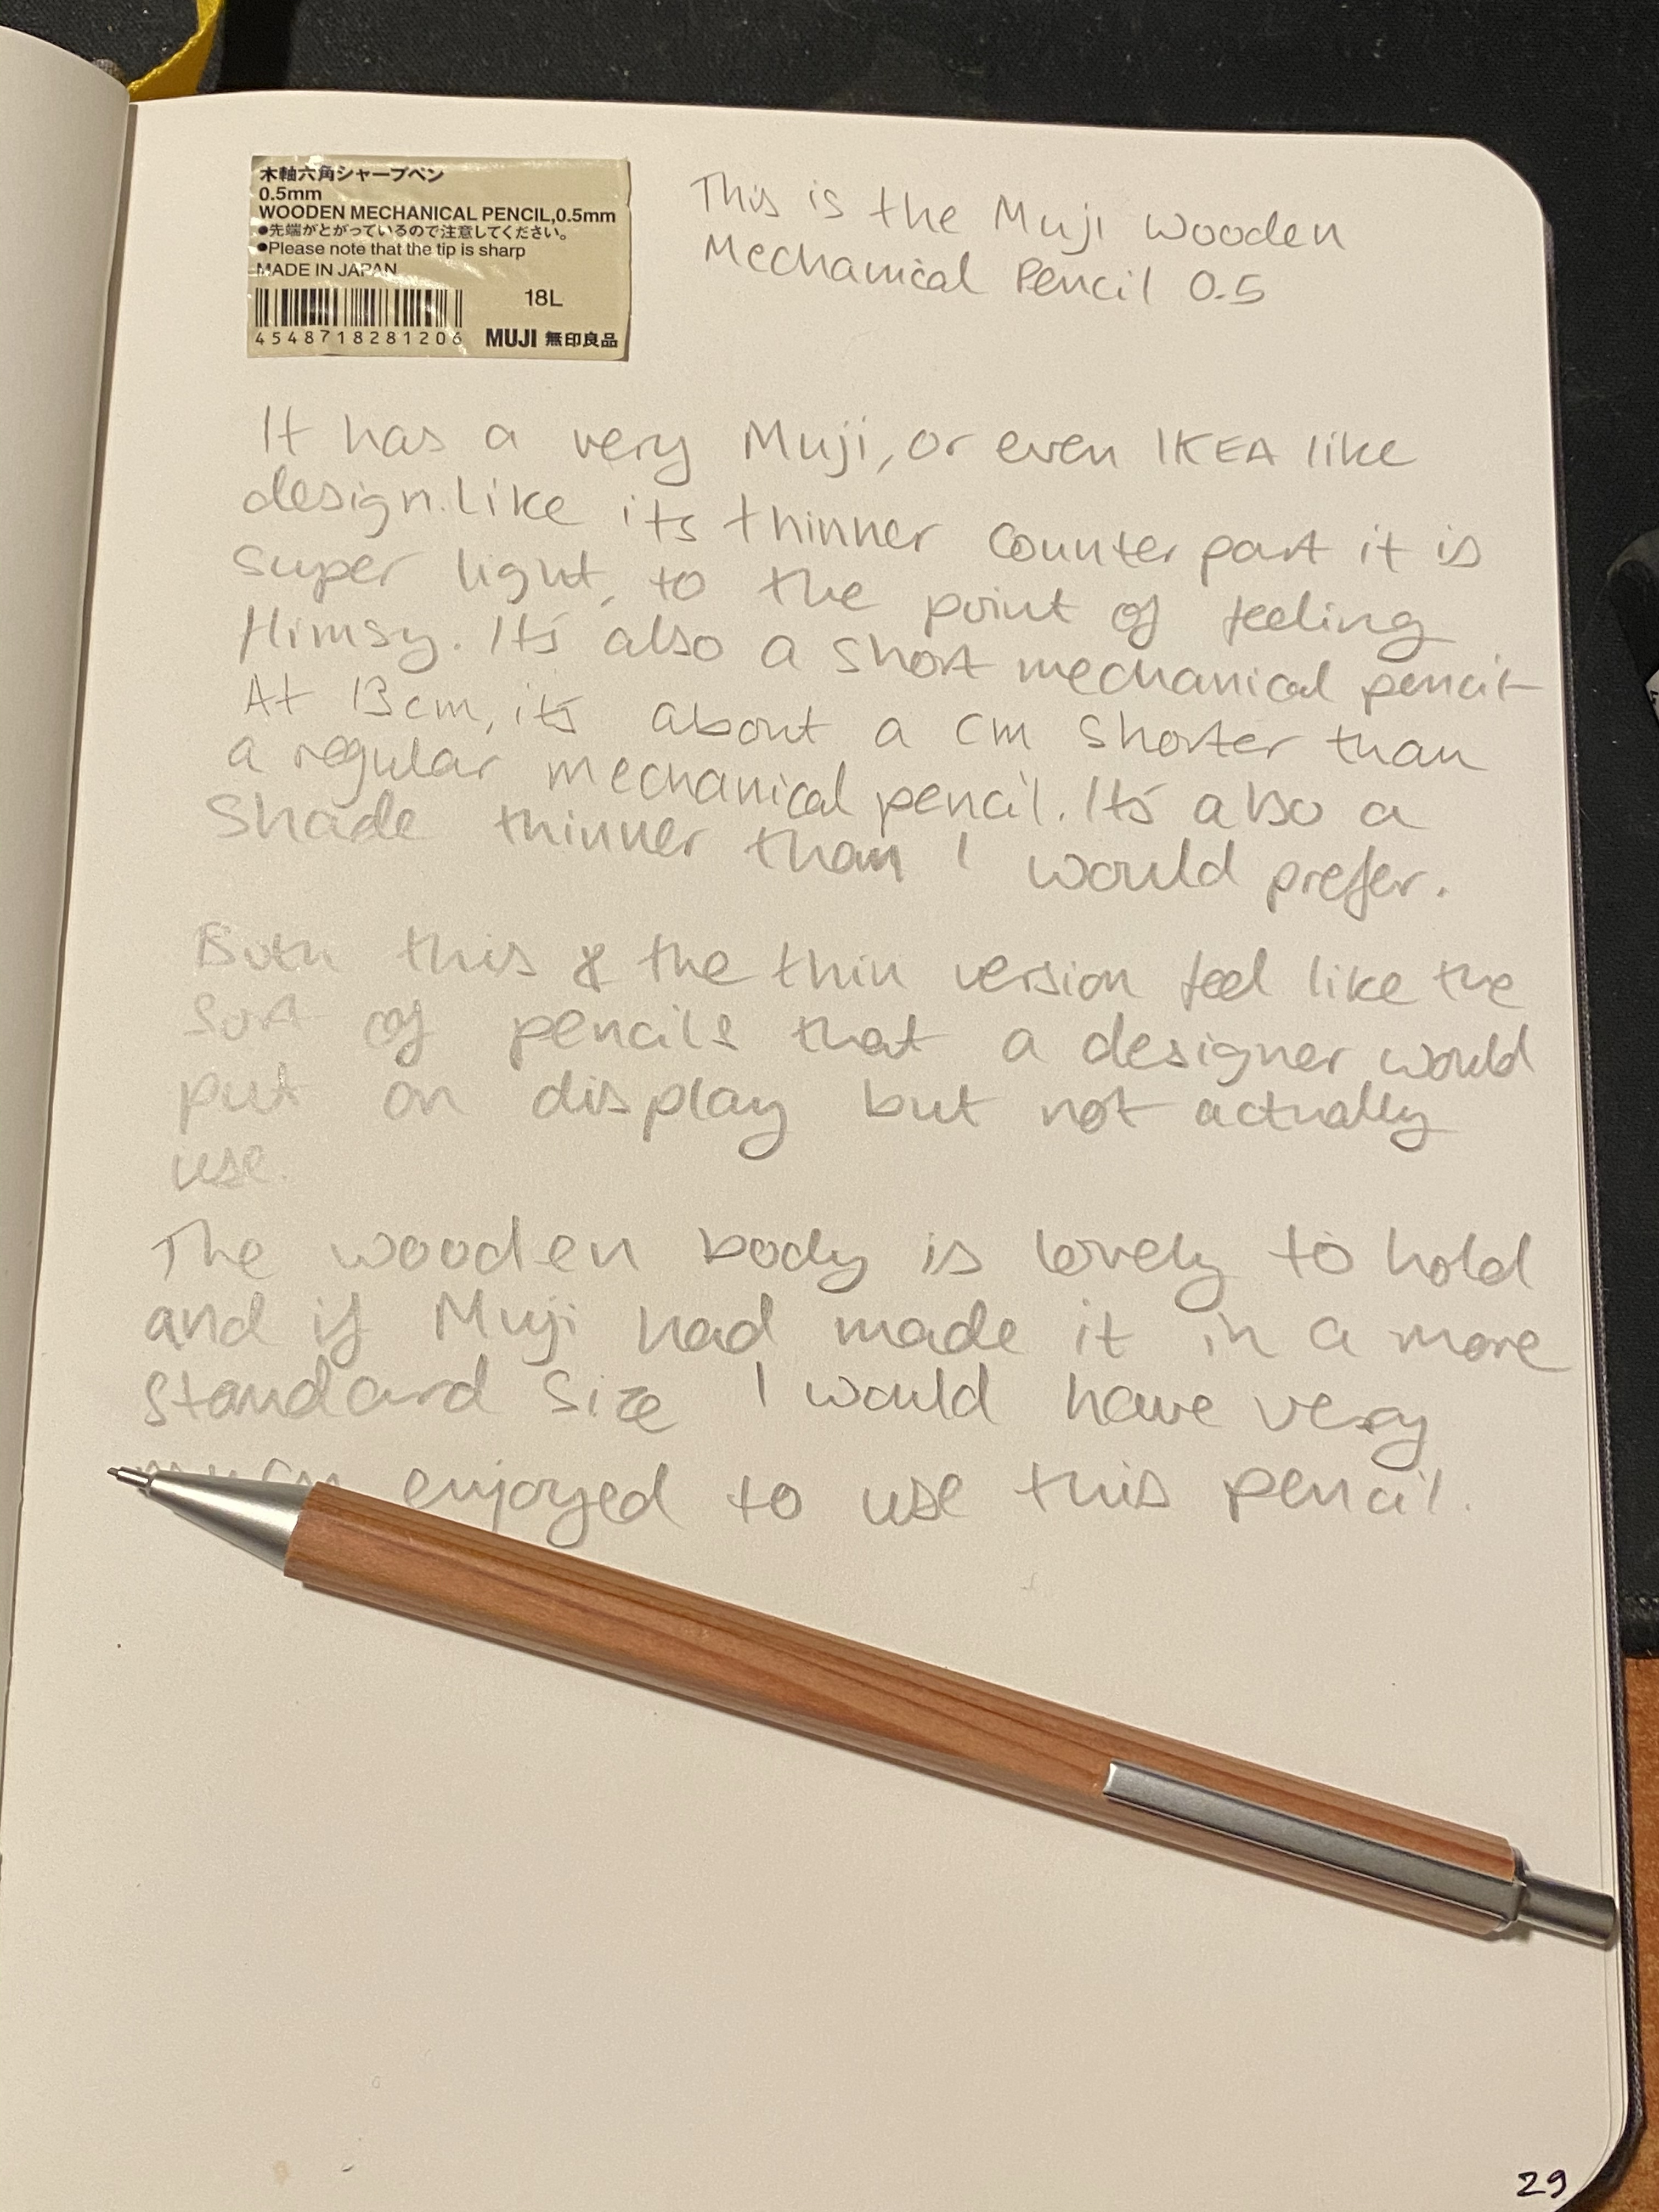 木軸六角シャープペン
0.5mm
WOODEN MECHANICAL PENCIL,0.5mm
●先端がとがっているので注意してください。
●Please note that the tip is sharp
MADE IN JAPAN
18L
4548718281206
MUJI 無印良品
This is the Muji Wooden
Mechanical Pencil 0.5
It has a very Muji, or even IKEA like
design. Like its thinner counter part it is
super light, to the point of feeling
flimsy. It's also a short mechanical pencil
At 13cm, it's about a cm shorter than
a regular mechanical pencil. It's also a
shade thinner than I would prefer.
Both this & the thin version feel like the
sort of pencils that a designer would
put on display but not actually
use.
The wooden body is lovely to hold
and if Muji had made it in a more
standard size I would have very
much enjoyed to use this pencil.
29